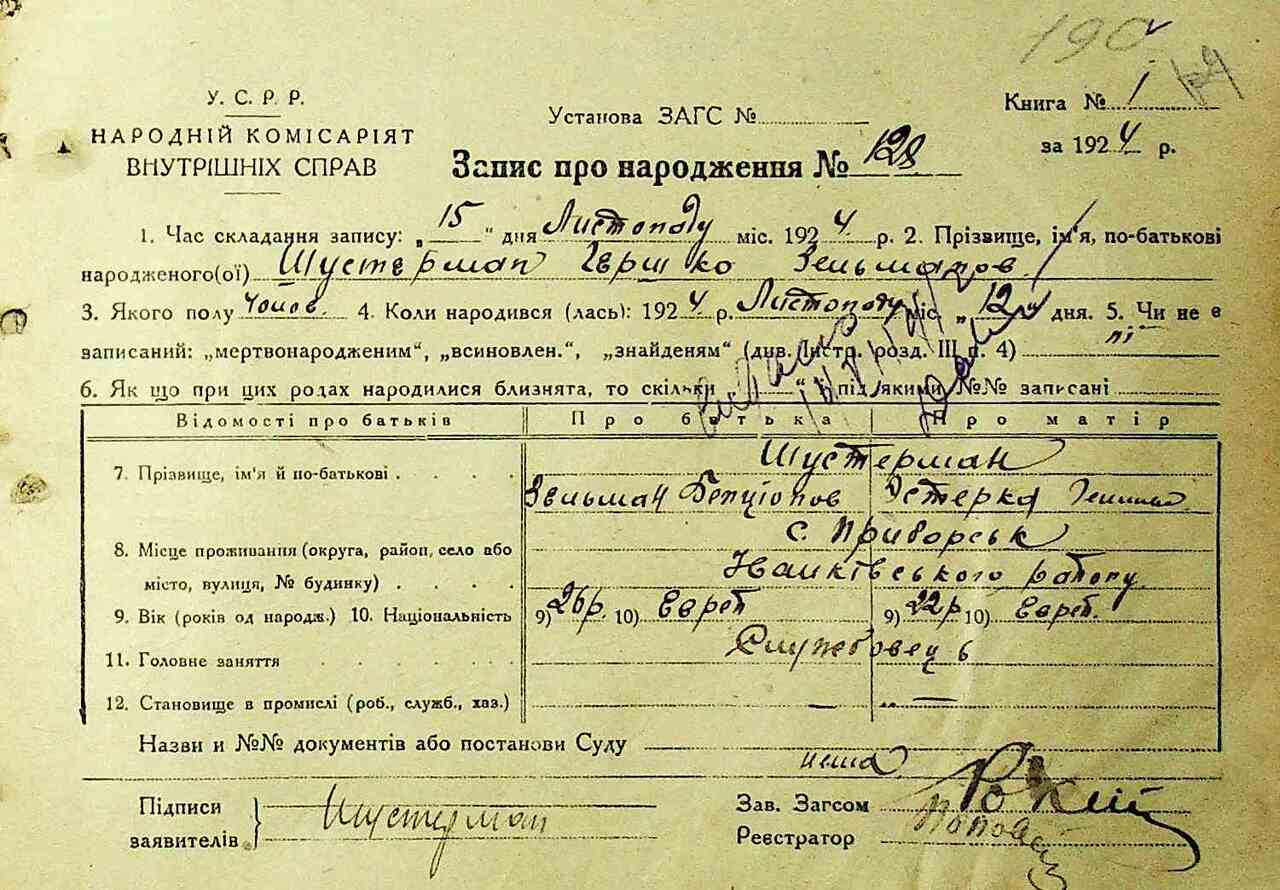 190
У. С. Р. Р.
НАРОДНІЙ КОМІСАРІЯТ
ВНУТРІШНІХ СПРАВ
Установа ЗАГС №
Книга № 1
за 1924 р.
Запис про народження № 128
1. Час складання запису: „ 15 " дня Листопаду міс. 1924 р. 2. Прізвище, ім'я, по-батькові
народженого(ої) Шустерман Гершко Зельманов
3. Якого полу чолов. 4. Коли народився (лась): 1924 р. Листопаду міс. „ 12 " дня. 5. Чи не є
записаний: „мертвонародженим", „всиновлен.", „знайденям" (див. Інстр. розд. III п. 4) ні
6. Як що при цих родах народилися близнята, то скільки " під якими №№ записані
Відомості про батьків Про батька Про матір
7. Прізвище, ім'я й по-батькові . . . . Шустерман
Зельман Бенціонов Эстерка
8. Місце проживання (округа, район, село або с. Приборськ
місто, вулиця, № будинку) . . . . Іванківського району
9. Вік (років од народж.) 10. Національність 9) 26 р. 10) Еврей 9) 22 р 10) Еврей.
11. Головне заняття . . . . . Службовець
12. Становище в промислі (роб., служб., хаз.) — —
Назви и №№ документів або постанови Суду нема
Підписи
заявителів } Шустерман
Зав. Загсом
Реєстратор